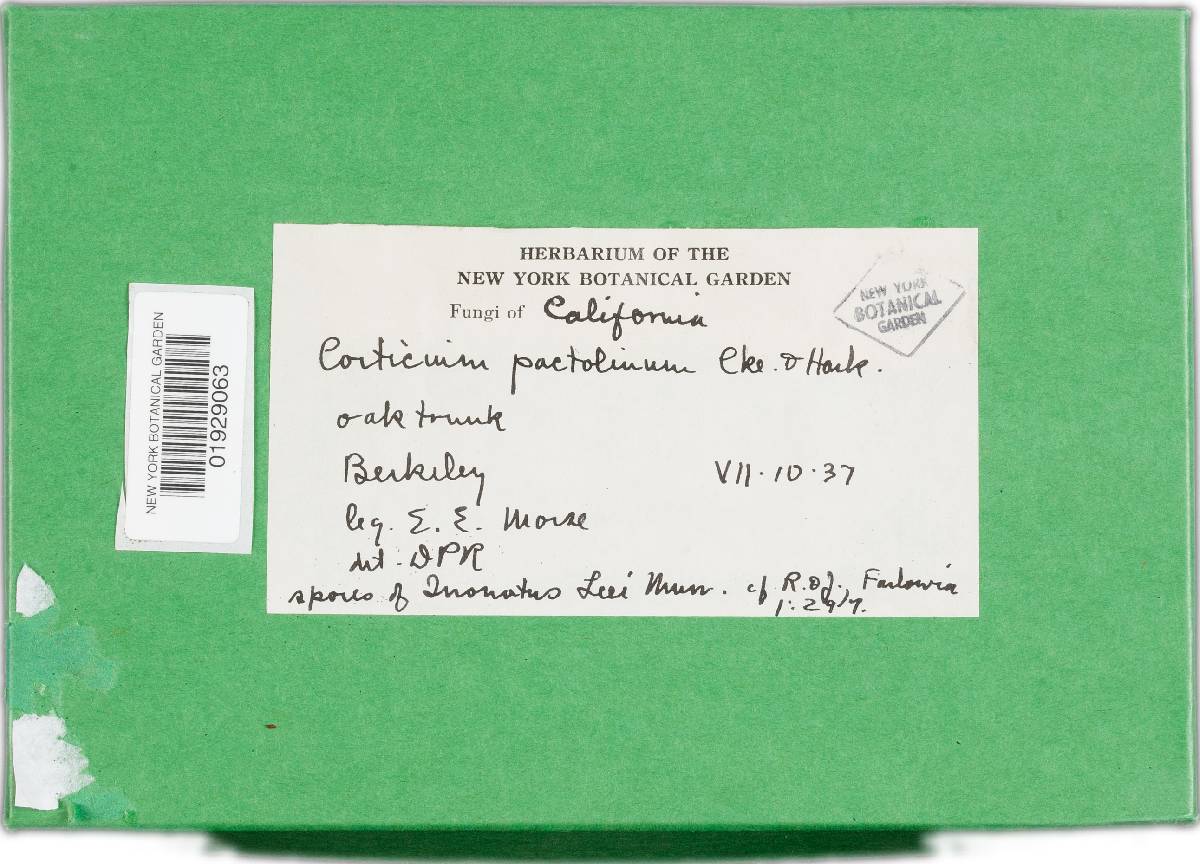 HERBARIUM OF THE
NEW YORK BOTANICAL GARDEN
Fungi of California
NEW YORK
BOTANICAL
GARDEN
Corticium pactolinum Cke. & Hark.
oak trunk
Berkeley VII·10·37
leg. E. E. Morse
det. DPR
spores of Inonotus Leei Murr. cf R. & J., Farlowia
1:297.
NEW YORK BOTANICAL GARDEN
01929063